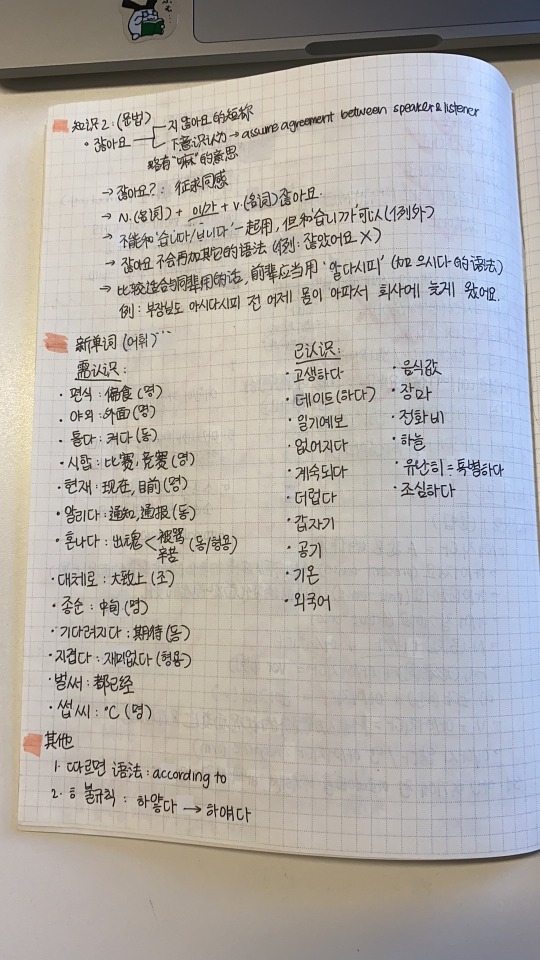 知识2:(문법)
· 잖아요 지 않아요的短称
下意识认为 → assume agreement between speaker & listener
略有"嘛"的意思
→ 잖아요? : 征求同感
→ N.(名词) + 이/가 + V.(名词)잖아요.
→ 不能和'습니다/ㅂ니다'一起用, 但和'습니까'可以(例外)
→ 잖아요 不会再加其它的语法 (例: 잖았어요 X)
→ 比较适合与同辈用的法, 前辈应当用 '알다시피' (加 으시다 的语法)
例: 부장님도 아시다시피 전 어제 몸이 아파서 회사에 늦게 왔어요.
新单词 (어휘)
需认识:
· 편식 : 偏食 (명)
· 야외 : 外面 (명)
· 틀다 : 켜다 (동)
· 시합 : 比赛, 竞赛 (명)
· 현재 : 现在, 目前 (명)
· 알리다 : 通知, 通报 (동)
· 혼나다 : 出魂 < 被骂 辛苦 (동/형용)
· 대체로 : 大致上 (조)
· 중순 : 中旬 (명)
· 기다려지다 : 期待 (동)
· 지겹다 : 재미없다 (형용)
· 벌써 : 都已经
· 썹씨 : °C (명)
已认识:
· 고생하다
· 데이트(하다)
· 일기예보
· 없어지다
· 계속되다
· 더럽다
· 갑자기
· 공기
· 기온
· 외국어
· 음식값
· 장마
· 전화비
· 하늘
· 유난히 = 특별하다
· 조심하다
其他
1. 따르면 语法 : according to
2. ㅎ 불규칙 : 하얗다 → 하얘다